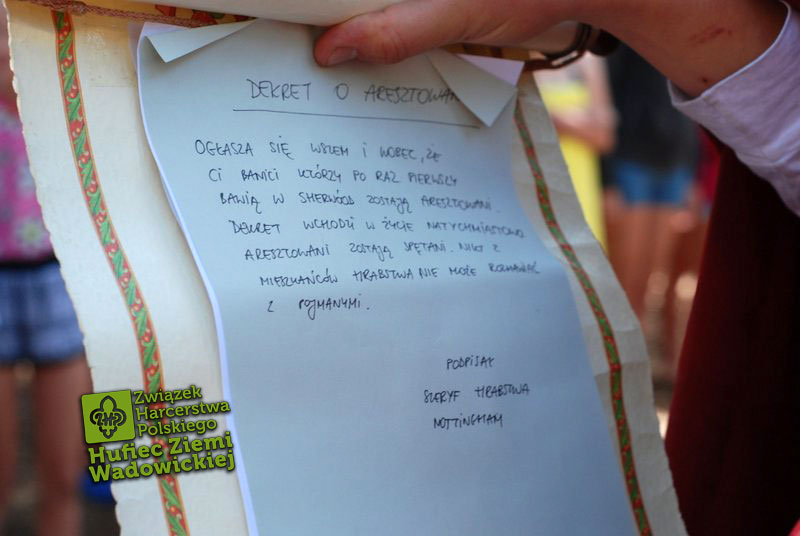 DEKRET O ARESZTOWAN
OGŁASZA SIĘ WSZEM I WOBEC, ŻE
CI BANICI KTÓRZY PO RAZ PIERWSZY
BAWIĄ W SHERWOOD ZOSTAJĄ ARESZTOWANI.
DEKRET WCHODZI W ŻYCIE NATYCHMIASTOWO
ARESZTOWANI ZOSTAJĄ SPĘTANI. NIKT Z
MIESZKAŃCÓW HRABSTWA NIE MOŻE ROZMAWIAĆ
Z POJMANYMI.
PODPISAŁ
SZERYF HRABSTWA
NOTTINGHAM
ZHP
Związek
Harcerstwa
Polskiego
Hufiec Ziemi
Wadowickiej